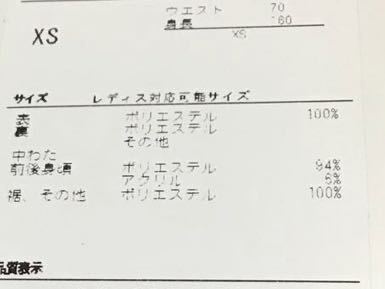 ウエスト 70
身長 160
XS
XS
サイズ レディス対応可能サイズ
表 ポリエステル 100%
裏 ポリエステル
その他
中わた
前後身頃 ポリエステル 94%
アクリル 6%
裾、その他 ポリエステル 100%
品質表示